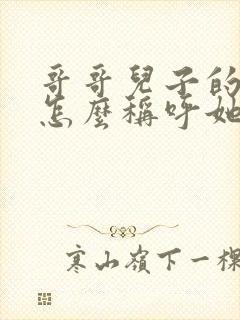 哥哥兒子的
怎麼稱呼她
寒山嶺下一棵